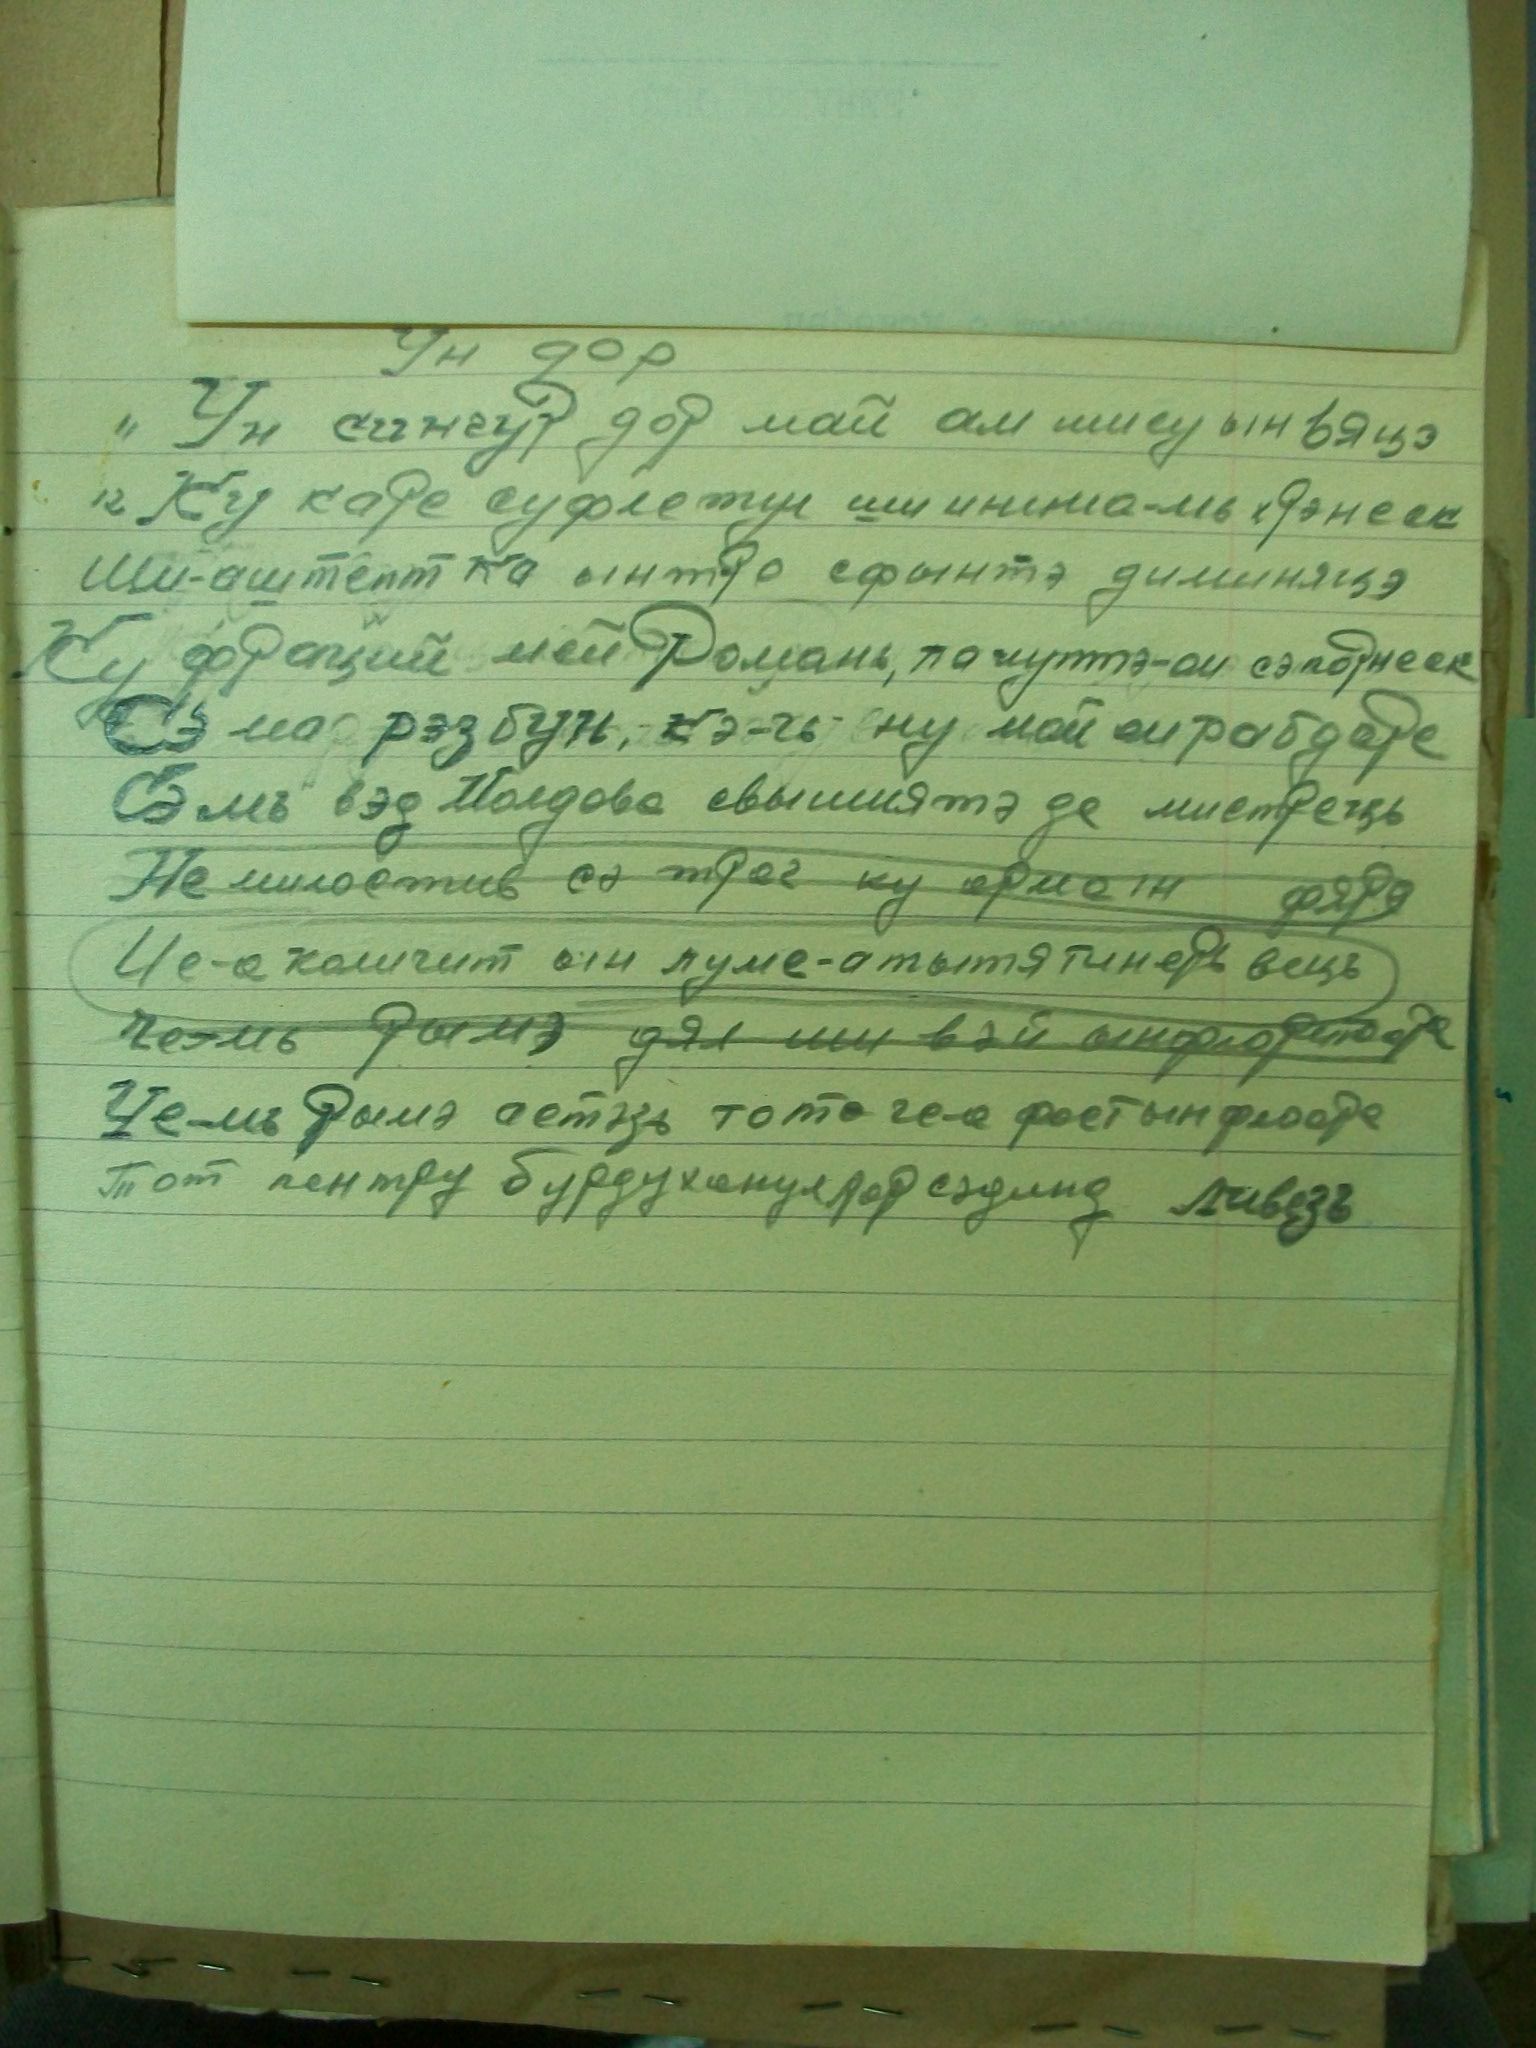 Ун дор
" Ун сингур дор май ам ши су ын вяцэ
Ку каре суфлетул ши инима-мь хрэнеск
Ши-аштепт ка ынтро сфынтэ диминяцэ
Ку фраций мей Романь, ла луптэ-ои сэ порнеск
Сэ ма рэзбун, кэ-чь ну май ои рабдаре
Сэмь вэд Молдова свышиятэ де мистрець
Не милостив сэ траг ку арма ын фяря
Че-а каличит ын луме-атытя тинерь вець
че-мь рымэ дял ши вэй ынфлоритоаре
Че-мь рымэ астэзь тот че-а фост ын флоаре
Тот пентру бурдуханул лор сэдинд ливезь